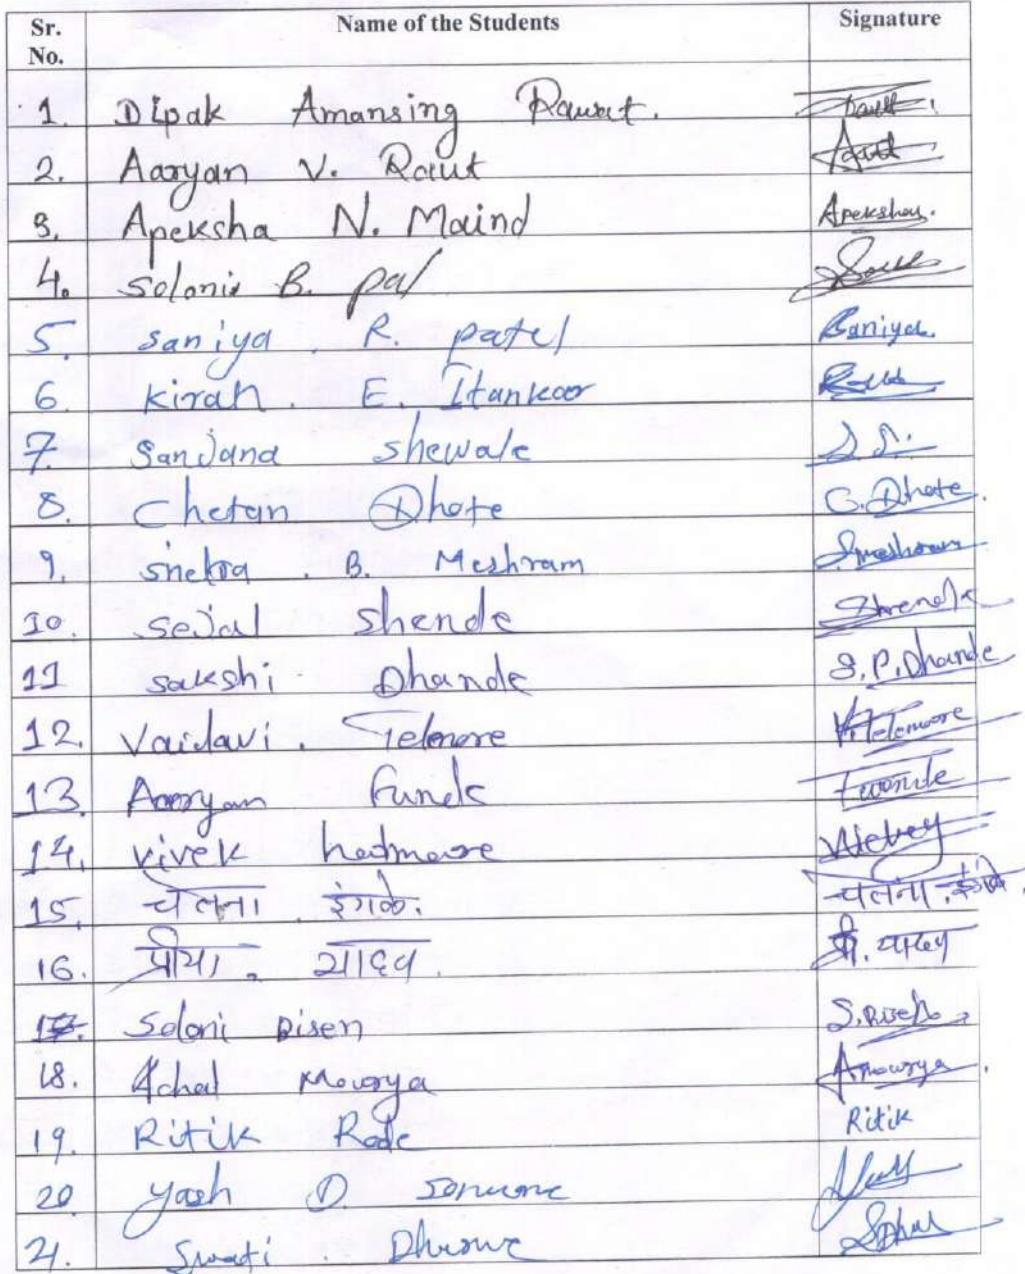 Sr. No. Name of the Students Signature
1. Dipak Amansing Rawat.
2. Aaryan V. Raut
3. Apeksha N. Maind Apeksha.
4. Saloni B. pal
5. saniya . R. patel Saniya.
6. Kiran . E. Itankar
7. Sanjana shewale S. S.
8. Chetan Dhote C. Dhote.
9. sneha . B. Meshram
10. sejal shende
11 sakshi Dhande S. P. Dhande
12. Vaidavi . Telmore
13 Aaryan Funde
14. vivek
15 चेतना . इंगळे. चेतना. इंगळे.
16. प्रीया . यादव प्री. यादव
17. Saloni Disen
18. Achal Mourya Amourya.
19. Ritik Rode Ritik
20 yash D. Sonwane
21. Swati . Dhurwe